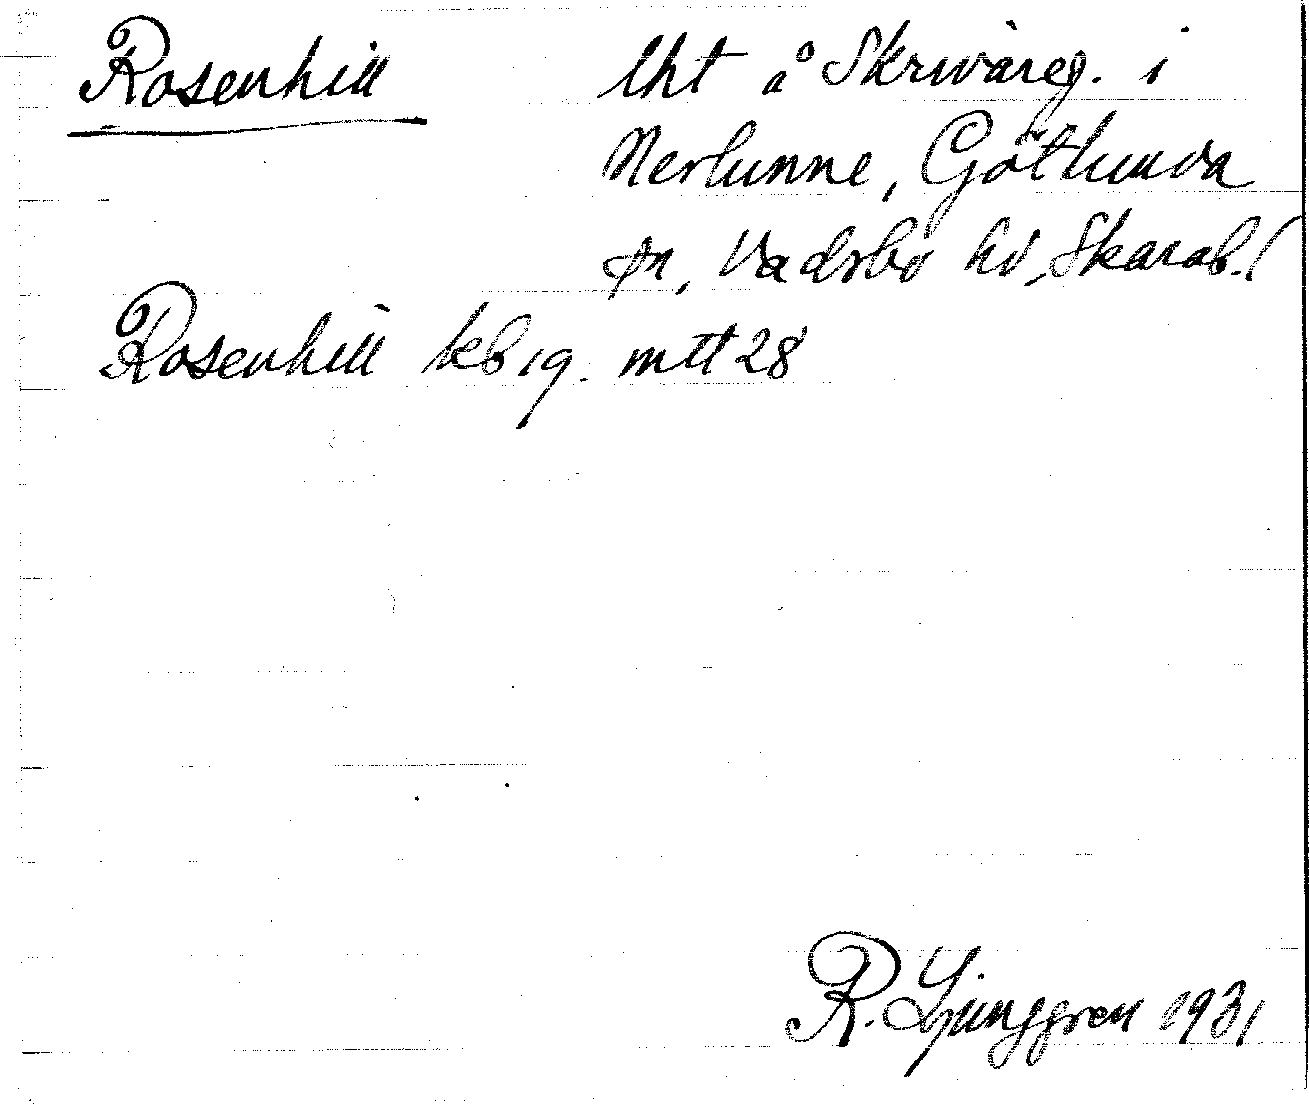 Rosenhill lht å Skrivareg. i
Nerlunne, Götlunda
sn, Vadsbo hd, Skarab. l
Rosenhill kb 19. mtt 28
R. Ljunggren 1931